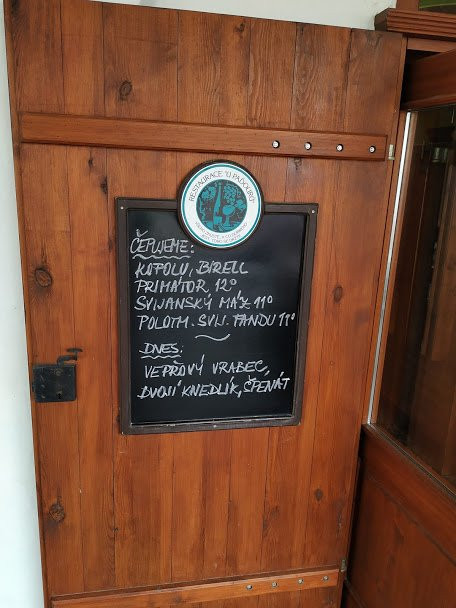 RESTAURACE "U PADOUCHŮ"
ČEPUJEME:
KOFOLU, BIRELL
PRIMÁTOR 12°,
SVIJANSKÝ MÁZ 11°
POLOTM. SVIJ. FANDU 11°
DNES:
VEPŘOVÝ VRABEC,
DVOJÍ KNEDLÍK, ŠPENÁT